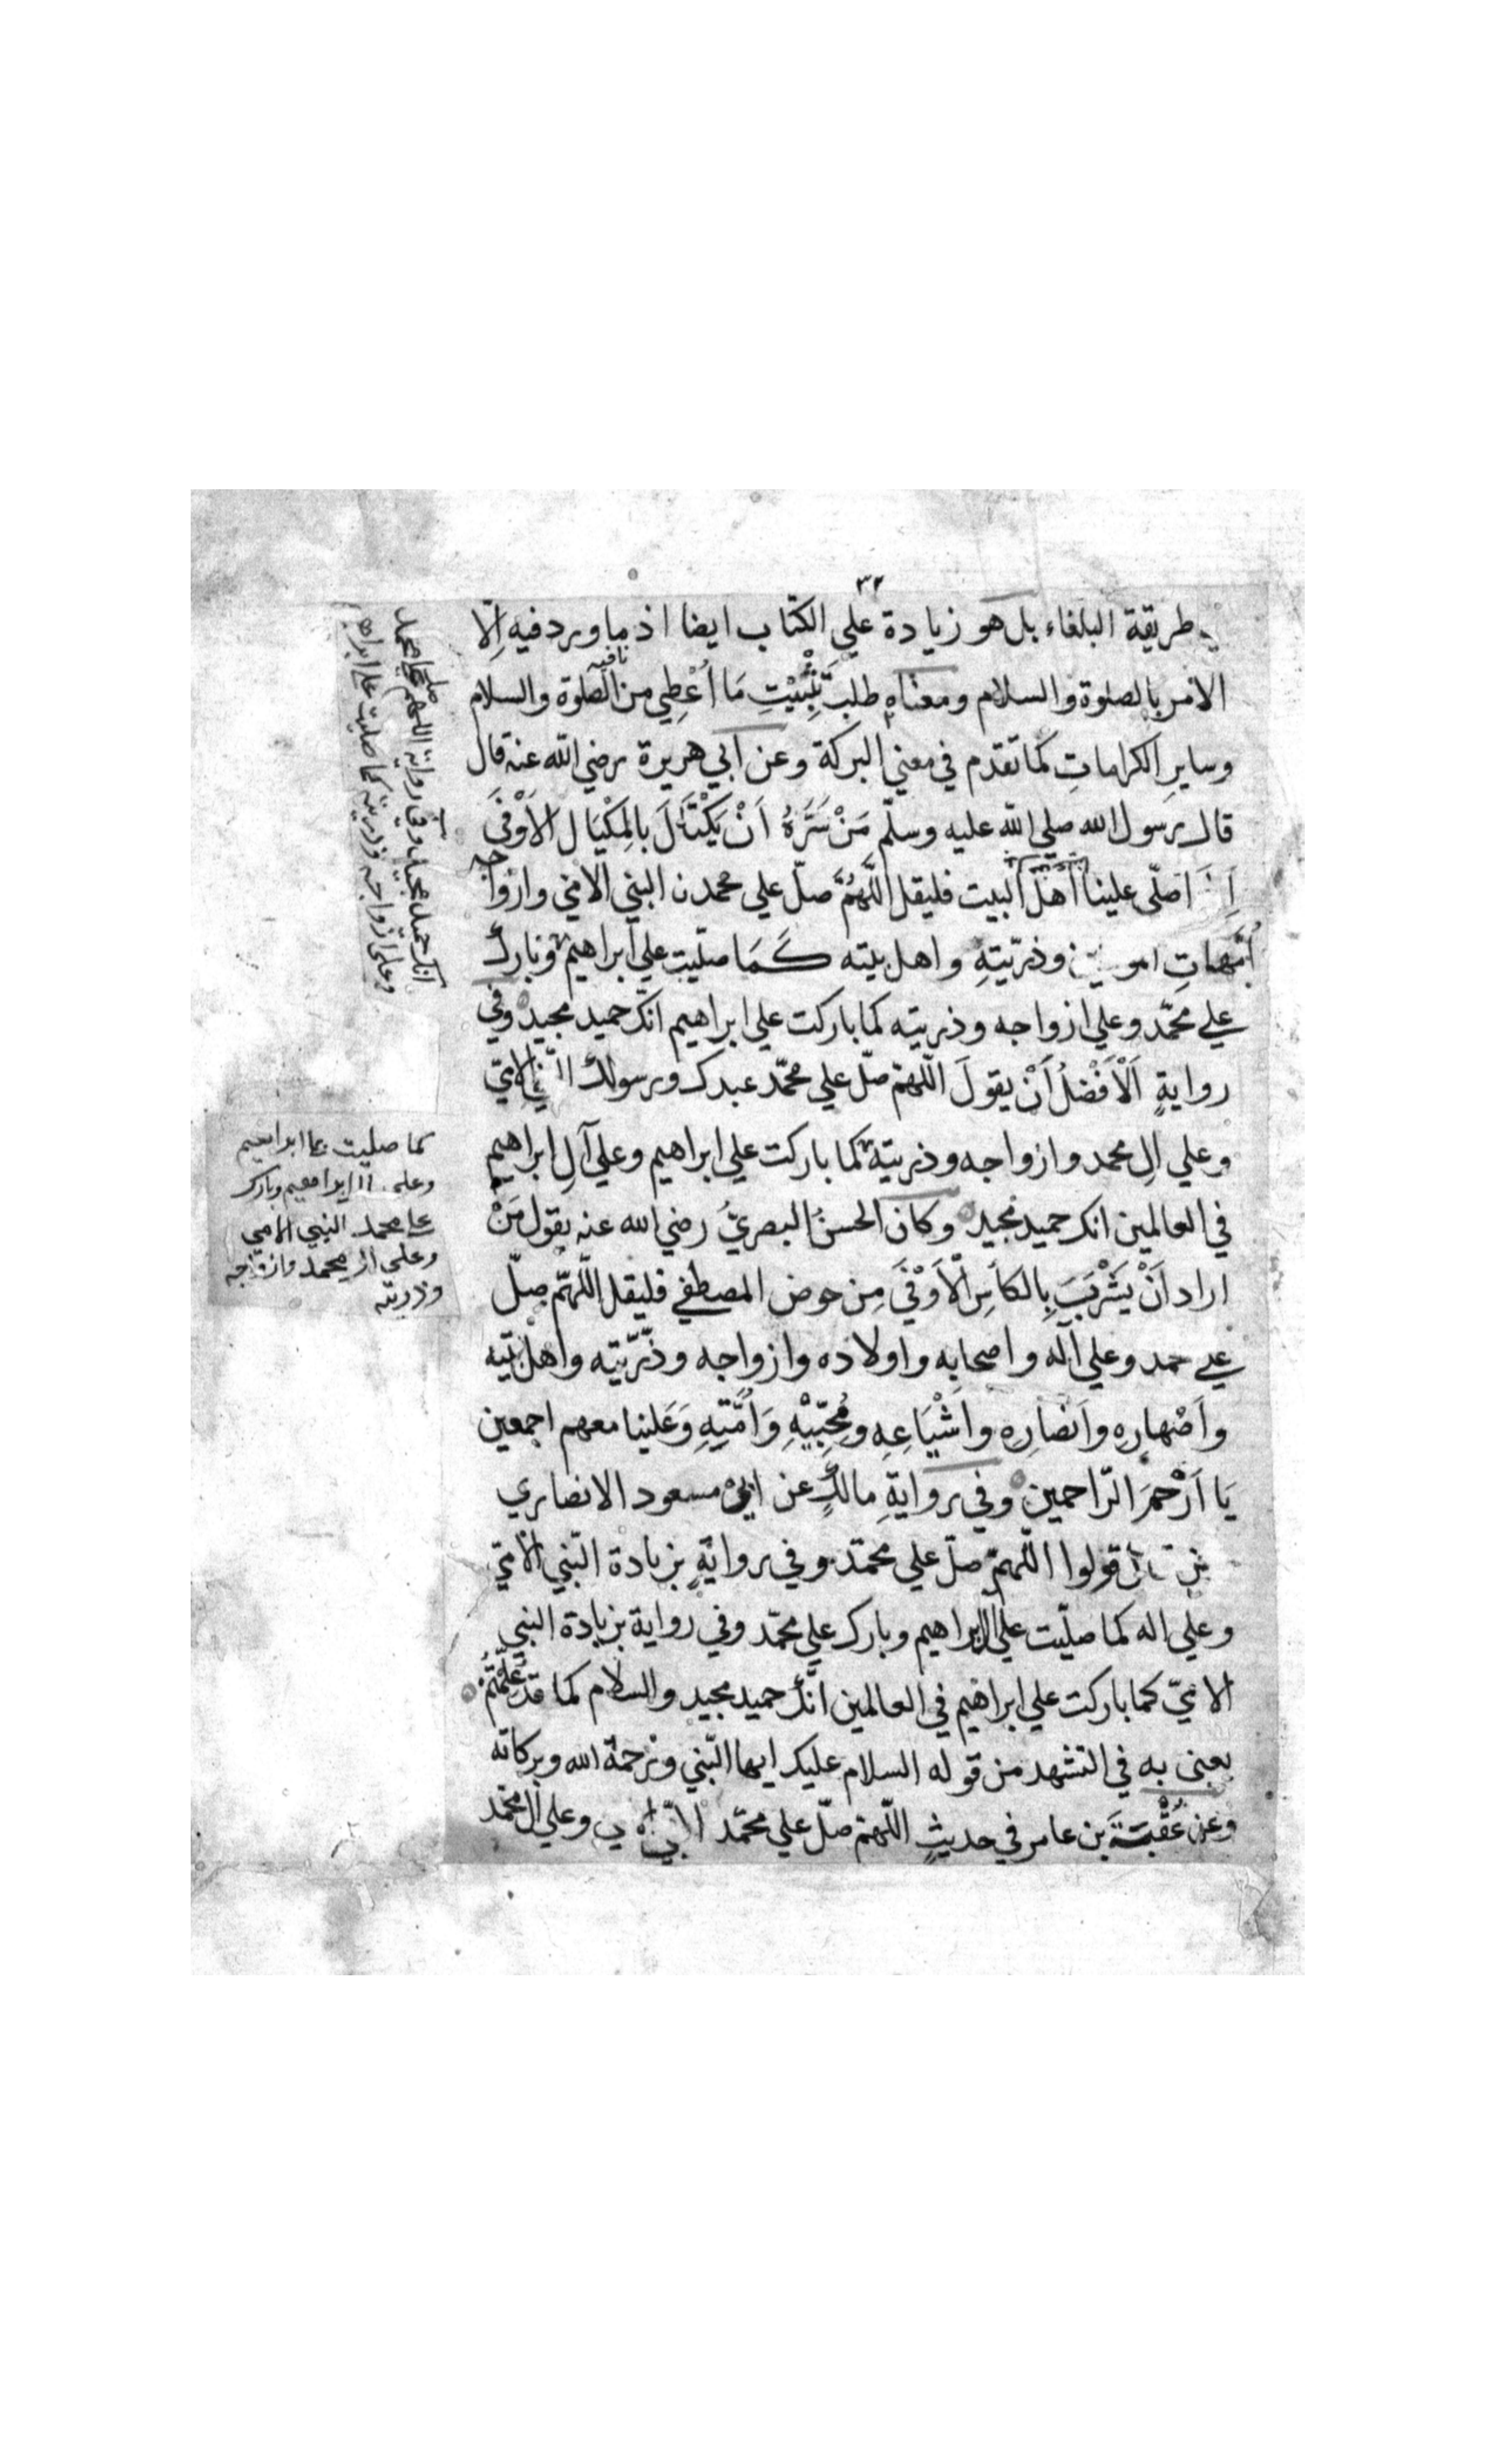 ٣٢
طريقة البلغاء بل هو زيادة علي الكتاب ايضا اذ ما ورد فيه اِلّا
الامر بالصلوة والسلام ومعناه طلب تثبيت مَا اُعْطِي من الصلوة والسلام
وسايرِ الكرامات كما تقدم في معني البركة وعن ابي هريرة رضي الله عنه قال
قال رسول الله صلي الله عليه وسلّم مَنْ سَرَّهُ اَنْ يَكْتَالَ بِالمِكْيَالِ الاَوْفَى
اذا صَلّى علينا اَهْلَ البيت فليقل اللّهُمَّ صلّ علي محمدن النبي الامي وازواجه
اُمَّهاتِ وذرّيّتِهِ واهل بيته كَمَا صلّيت علي ابراهيم وبارك
علي محمّد وعلي ازواجه وذريته كما باركت علي ابراهيم انّك حميد مجيد وفي
روايةٍ اَلْاَفْضلُ اَنْ يقولَ اللّهمّ صلّ علي محمّد عبدك ورسولك النبي الامي
وعلي الِ محمد وازواجه وذريته كما باركت علي ابراهيم وعلي آلِ ابراهيم
في العالمين انك حميد مجيد وكان الحسنُ البصريُّ رضي الله عنه يقول مَنْ
اراد اَنْ يَشْرَبَ بِالكأسِ الْاَوْفَى مِن حوض المصطفي فليقل اللّهمّ صلّ
علي محمد وعلي آله واصحابه واولاده وازواجه وذرّيّته واهل بيته
واَصْهارِه واَنصارِه واَشْيَاعِهِ ومُحِبّيْهِ وَاُمَّتِهِ وَعَلينا معهم اجمعين
يَا اَرْحَمَ الرّاحمين وفي روايةِ مالكٍ عن ابي مسعود الانصاري
قولوا اللّهمّ صلّ علي محمّد وفي روايةٍ بزيادة النّبي الامّي
وعلي اله كما صلّيت علي ال ابراهيم وبارك علي محمّد وفي رواية بزيادة النبي
الامّيّ كما باركت علي ابراهيم في العالمين انّك حميد مجيد والسلام كما قد عُلِّمْتُمْ
يعنى به في التشهد من قوله السلام عليك ايها النّبي ورحمة الله وبركاته
وعن عُقْبَةَ بن عامر في حديثٍ اللّهمّ صلّ علي محمّد النّبي الامي وعلي ال محمّد
انك حميد مجيد وفي رواية اللهم صل على محمد
وعلى ازواجه وذريته كما صليت على ابراهيم
كما صليت على ابراهيم
وعلى ال ابراهيم وبارك
على محمد النبي الامي
وعلى ال محمد وازواجه
وذريته